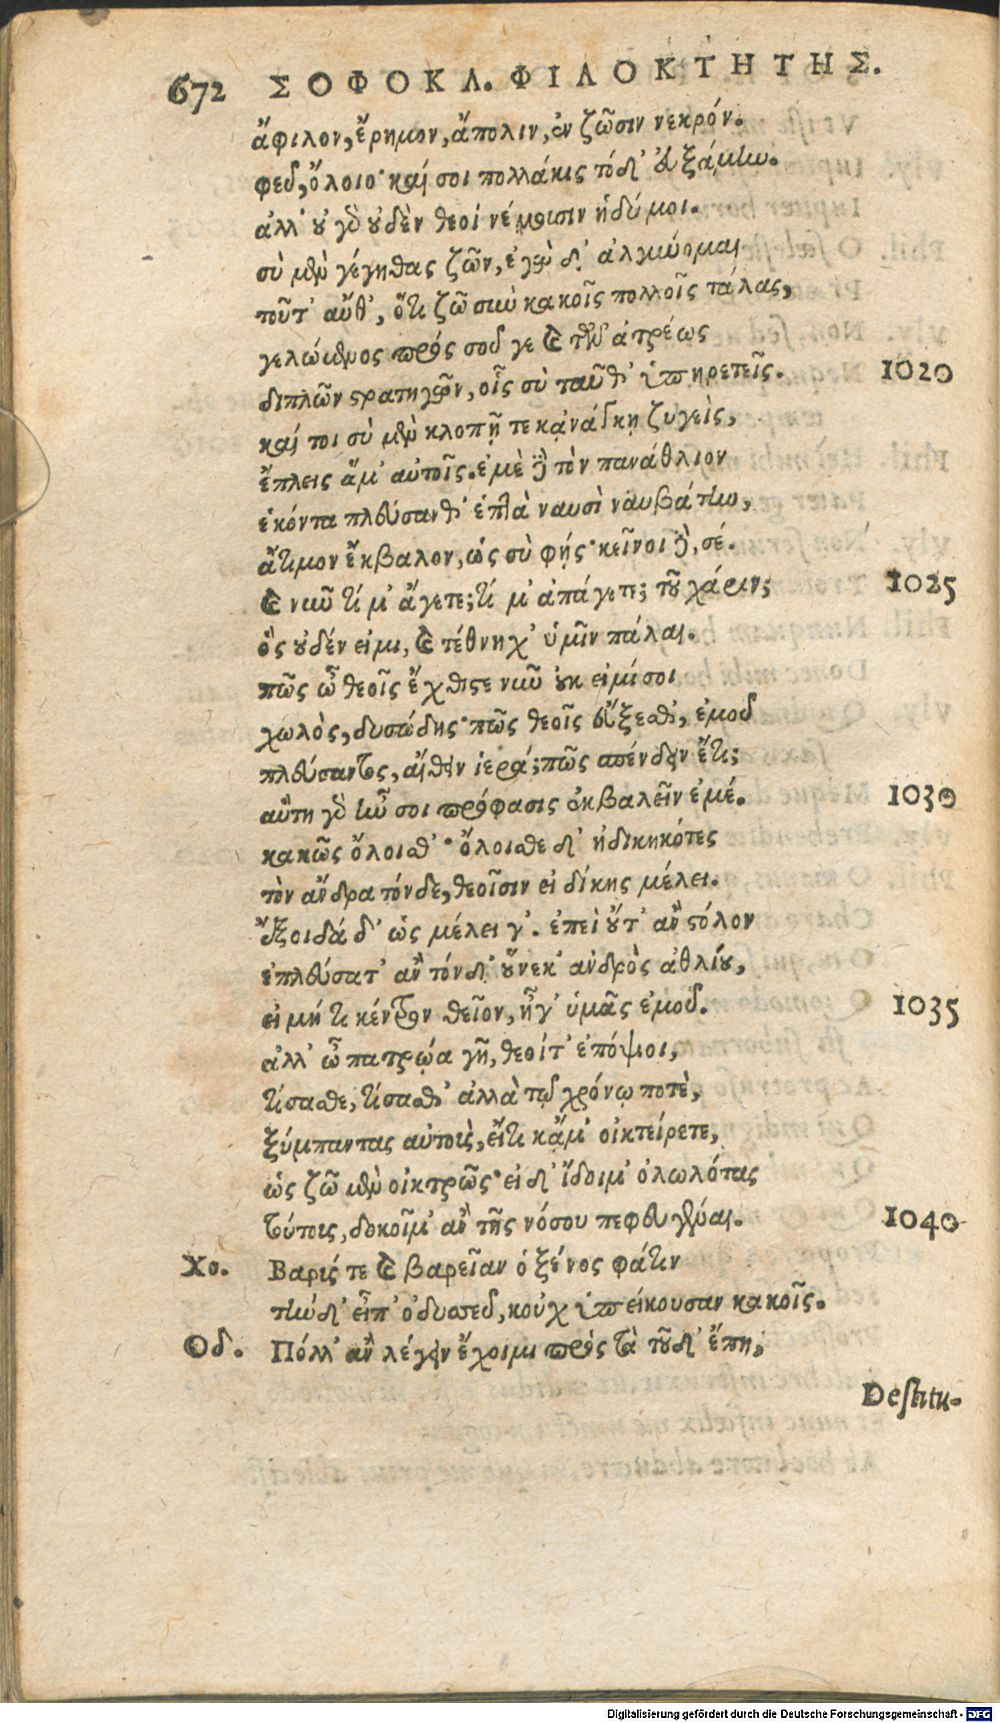 672 ΣΟΦΟΚΛ. ΦΙΛΟΚΤΗΤΗΣ.
ἄφιλον, ἔρημον, ἄπολιν, ἐν ζῶσιν νεκρόν.
φεῦ, ὄλοιο· καί σοι πολλάκις τόδ' εὐξάμην.
ἀλλ' οὐ γὰρ οὐδὲν θεοὶ νέμουσιν ἡδύ μοι.
σὺ μὲν γέγηθας ζῶν, ἐγὼ δ' ἀλγύνομαι
τοῦτ' αὔθ', ὅτι ζῶ σὺν κακοῖς πολλοῖς τάλας,
γελώμενος πρός σοῦ γε καὶ τῶν ἀτρέως
διπλῶν στρατηγῶν, οἷς σὺ ταῦθ' ὑπηρετεῖς. 1020
καί τοι σὺ μὲν κλοπῇ τε κἀνάγκῃ ζυγεὶς,
ἔπλεις ἅμ' αὐτοῖς. ἐμὲ δὲ τὸν πανάθλιον
ἑκόντα πλεύσανθ' ἑπτὰ ναυσὶ ναυβάτην,
ἄτιμον ἔκβαλον, ὡς σὺ φής· κεῖνοι δὲ, σέ.
καὶ νῦν τί μ' ἄγετε; τί μ' ἀπάγετε; τοῦ χάριν; 1025
ὃς οὐδέν εἰμι, καὶ τέθνηχ' ὑμῖν πάλαι.
πῶς ὦ θεοῖς ἔχθιστε νῦν οὐκ εἰμί σοι
χωλὸς, δυσώδης· πῶς θεοῖς εὔξεσθ', ἐμοῦ
πλεύσαντος, αἴθειν ἱερά; πῶς σπένδειν ἔτι;
αὕτη γὰρ ἦν σοι πρόφασις ἐκβαλεῖν ἐμέ. 1030
κακῶς ὄλοισθ'· ὄλοισθε δ' ἠδικηκότες
τὸν ἄνδρα τόνδε, θεοῖσιν εἰ δίκης μέλει.
ἔξοιδά δ' ὡς μέλει γ'. ἐπεὶ οὔτ' ἂν στόλον
ἐπλεύσατ' ἂν τόνδ' οὕνεκ' ἀνδρὸς ἀθλίου,
εἰ μή τι κέντρον θεῖον, ἦγ' ὑμᾶς ἐμοῦ. 1035
ἀλλ' ὦ πατρῴα γῆ, θεοί τ' ἐπόψιοι,
τίσασθε, τίσασθ' ἀλλὰ τῷ χρόνῳ ποτὲ,
ξύμπαντας αὐτοὺς, εἴτι κἄμ' οἰκτείρετε,
ὡς ζῶ μὲν οἰκτρῶς· εἰ δ' ἴδοιμ' ὀλωλότας
τούτους, δοκοῖμ' ἂν τῆς νόσου πεφευγέναι. 1040
Χο. Βαρύς τε καὶ βαρεῖαν ὁ ξένος φάτιν
τήνδ' εἶπ' ὀδυσσεῦ, κοὐχ ὑπείκουσαν κακοῖς.
Οδ. Πόλλ' ἂν λέγειν ἔχοιμι πρὸς τὰ τοῦδ' ἔπη,
Destitu-
Digitalisierung gefördert durch die Deutsche Forschungsgemeinschaft - DFG